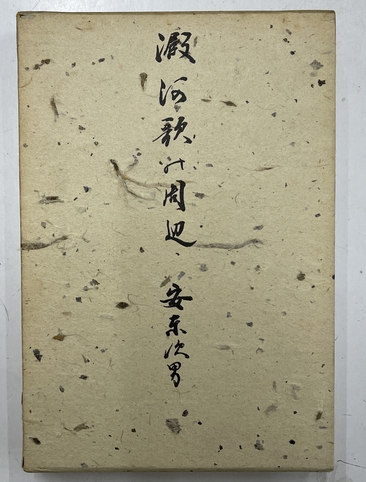 澱河歌の周辺、安東次男